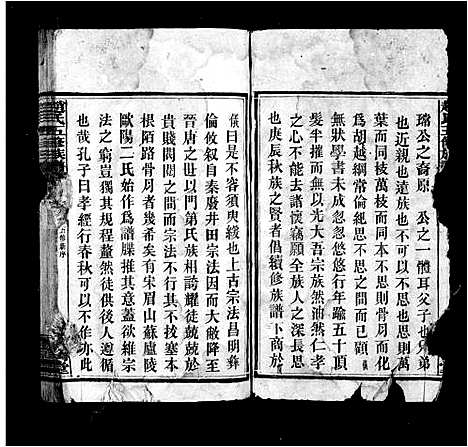 瑞公之裔原　公之一體耳父子也兄弟
也近親也遠族也不可以不思也思則萬
葉而同枝萬支而同本不思則骨月而化
為胡越綱常倫紀思不思之间而已
無狀學書未成忽忽悠悠行年踰五十頂
髮半摧無以光大吾宗族然油然仁孝
之心不能去諸懷竊願全族人之深長思
也庚辰秋族之賢者倡續修族譜卜商於
僕曰是不容須臾緩也上古宗法昌明彝
倫攸叙自秦廢井田宗法因而大敝降至
晉唐之世以門第氏族相誇耀徒兢兢於
貴賤閥閱之间而宗法不行其不拔塞本
根陌路骨月者幾希矣有宋眉山蘇廬陵
歐陽二氏始作爲譜牒推其意蓋欲維宗
法之窮豈獨其規程釐然徒供後人遵循
也哉孔子曰孝經行春秋可以不作亦此